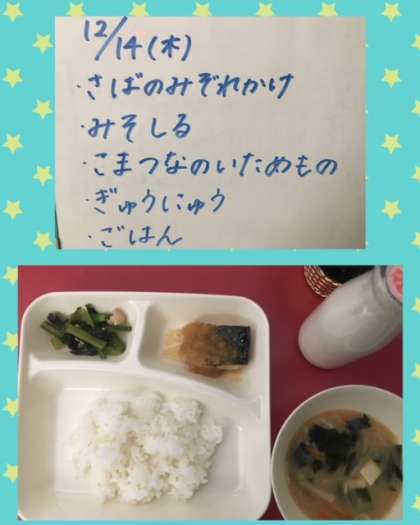 12/14(木)
・さばのみぞれかけ
・みそしる
・こまつなのいためもの
・ぎゅうにゅう
・ごはん